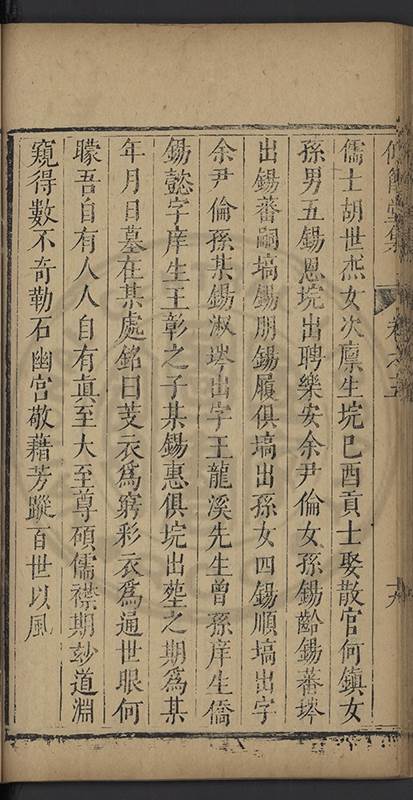 儒士胡世杰女次廩生垸己酉貢士娶散官何鎮女
孫男五錫恩垸出聘樂安余尹倫女孫錫齡錫蕃㙩
出錫蕃嗣塙錫朋錫履俱塙出孫女四錫順塙出字
余尹倫孫某錫淑㙩出字王龍溪先生曾孫庠生僑
錫懿字庠生王彰之子某錫惠俱垸出塟之期為某
年月日墓在某處銘曰芰衣為窮彩衣為通世眼何
矇吾自有人人自有眞至大至尊碩儒襟期玅道淵
窺得數不奇勒石幽宮敬藉芳蹤百世以風